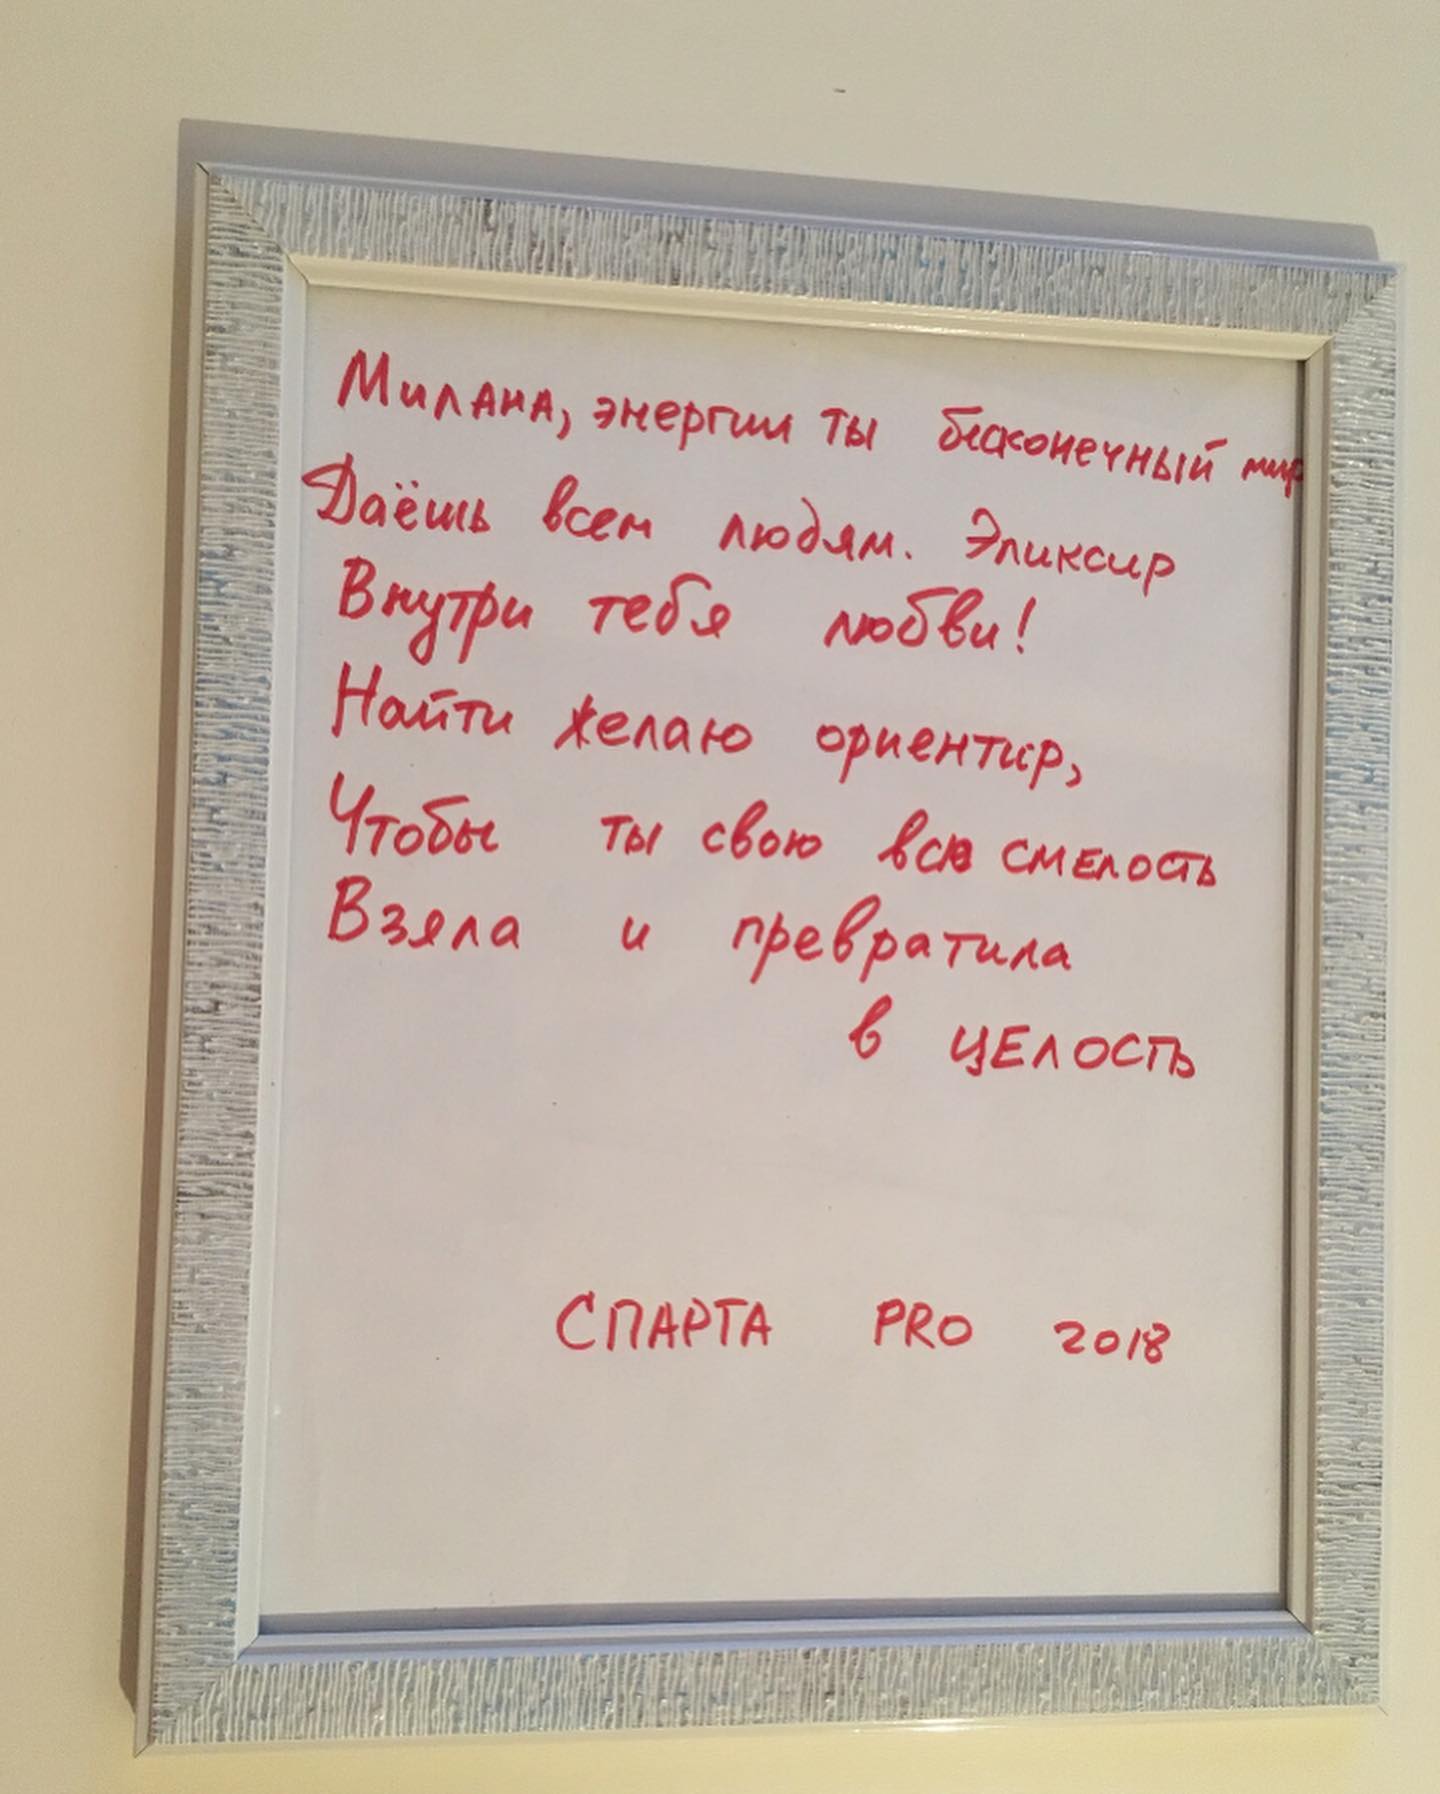 Милана, энергии ты бесконечный мир
Даёшь всем людям. Эликсир
Внутри тебя любви!
Найти желаю ориентир,
Чтобы ты свою всю смелость
Взяла и превратила
в целость
СПАРТА PRO 2018